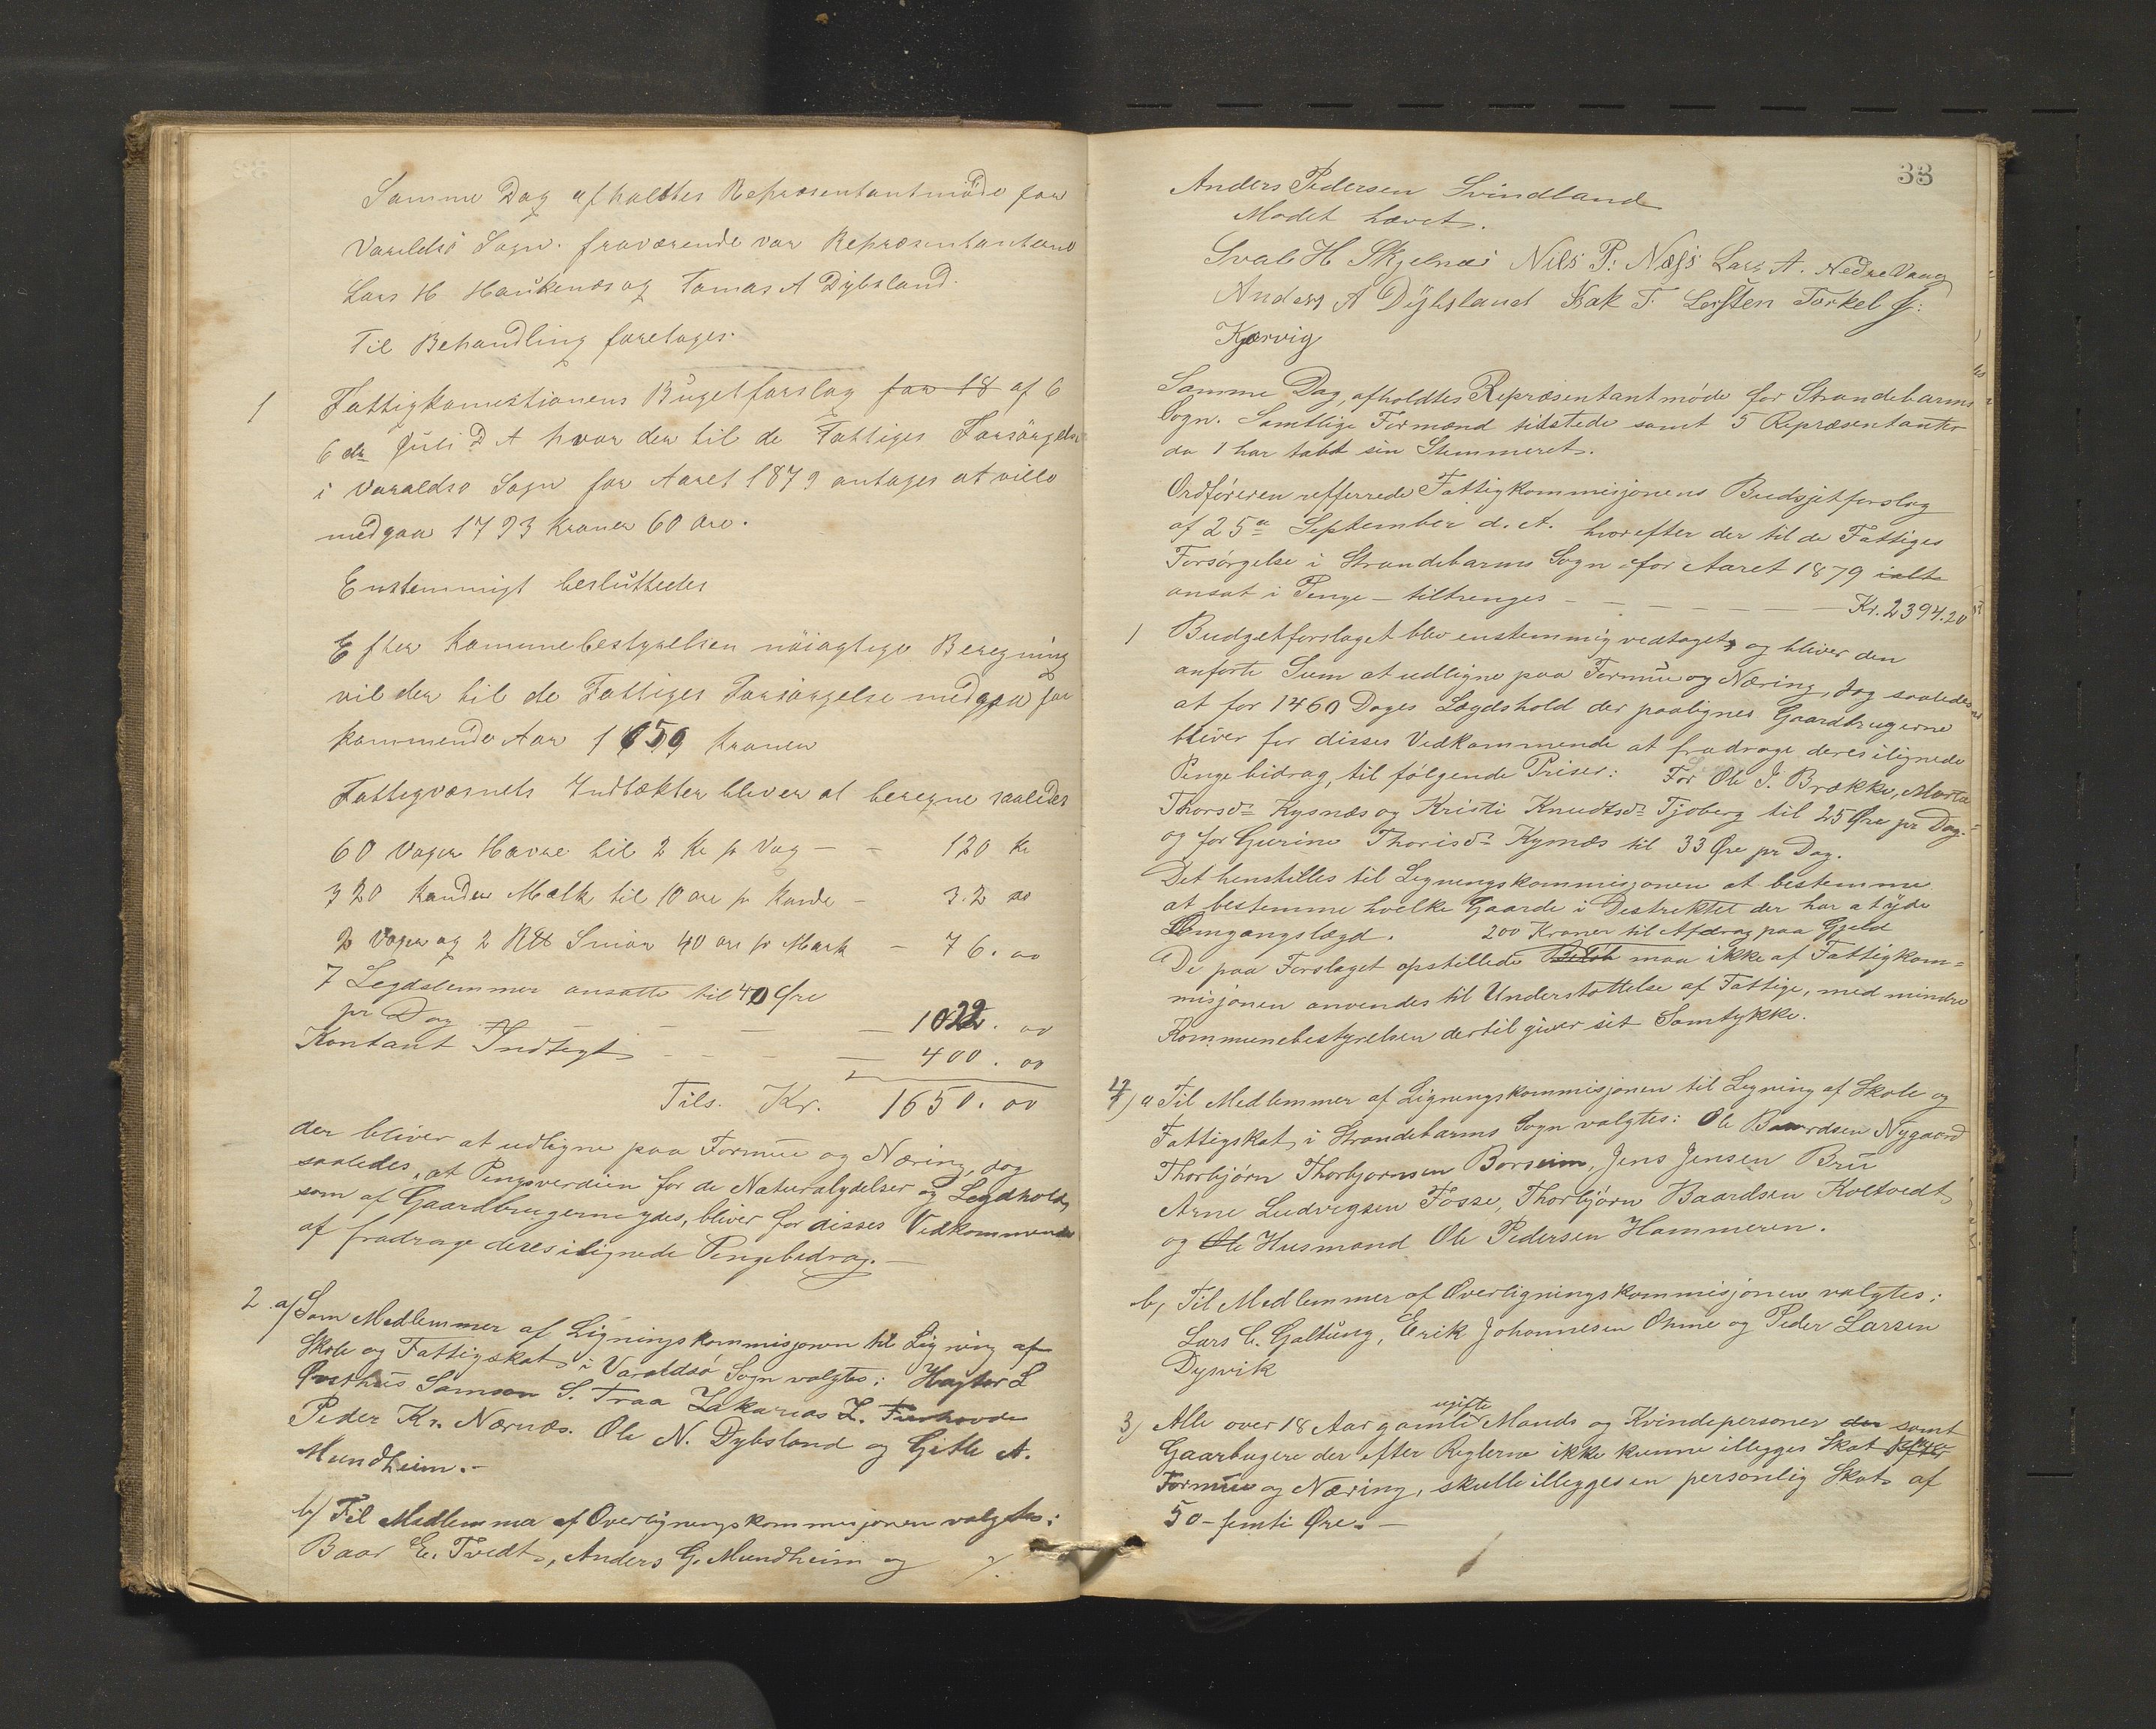 Samme Dag afholdtes Repræsentantmöde for
Varaldsö Sogn. fraværende var Repræsentanterne
Lars H Haukenæs og Tomas A Dybsland.
Til Behandling foretages.
1 Fattigkomistionens Bugetforslag for 18 af 6
6 de Juli D A hvor der til de Fattiges Forsörgelse
i Varaldsö Sogn for Aaret 1879 antages at ville
medgaa 1793 Kroner 60 Öre.
Enstemmigt besluttedes
Efter Kommunebestyrelsen nöiagtige Beregning
vil der til de Fattiges Forsörgelse medgaa for
kommende Aar 1650 Kroner
Fattigvæsnets Indtækter bliver at beregne saaledes
60 Vager Havre til 2 Kr pr Vag - - 120 Kr
320 Kander Mælk til 10 öre pr Kande - 32 00
2 Vager og 2 Smör 40 öre pr Mark - 76. 00
7 Legdslemmer ansatte til 40 Øre
pr Dag - - - - 1022. 00
Kontant Indtægt - - - - 400. 00
Tils. Kr. 1650. 00
der bliver at udligne paa Formue og Næring, dog
saaledes, at Pengeverdien for de Naturalydelser og Legdhold,
som af Gaardbrugerne ydes, bliver for disses Vedkommende
af fradrage deres ilignede Pengebidrag. -
2 a/ Som Medlemmer af Ligningskommisjonen til Ligning af
Skole og Fattigskat i Varaldsö Sogn valgtes: L
Samson S. Traa Zakarias Z.
Peder Kr. Nærnæs. Ole N. Dybsland og Gitle A.
Mundheim. -
b/ Til Medlemmer af Overligningskommisjonen valgtes:
Baar E. Tvedt, Anders G. Mundheim og ./.
33
Anders Pedersen Svindland
Mødet hævet.
H Skjelnæs Nils P. Næss Lars A. Nedre Vaag
Anders A Dybsland Isak T. Torkel J.
Kjærvig
Samme Dag, afholdtes Repræsentantmøde for Strandebarms
Sogn. Samtlige Formænd tilstede samt 5 Repræsentanter
da 1 har tabt sin Stemmeret.
Ordføreren refferrede Fattigkommisjonens Budsjetforslag
af 25de September d. A. hvorefter der til de Fattiges
Forsørgelse i Strandebarms Sogn for Aaret 1879 ialt
ansat i Penge - tiltrenges - - - - - - Kr. 2394.20
1 Budgetforslaget blev enstemmig vedtaget, og bliver den
anførte Sum at udligne paa Formue og Næring, dog saaledes
at for 1460 Dages Lægdshold der paalignes Gaardbrugerne
bliver for disses Vedkommende at fradrage deres ilignede
Pengebidrag, til følgende Priser: For Ole J. Brække, Marta
Thorsdr Kysnæs og Kristi Knudtsdr Tjoberg til 25 Øre pr Dag.
og for Gurine Thorisdr Kysnæs til 33 Øre pr Dag.
Det henstilles til Legningskommisjonen at bestemme
at bestemme hvelke Gaarde i Destriktet der har at yde
Omgangslægd. 200 Kroner til Afdrag paa Gjæld
De paa Forslaget opstillede Beløb maa ikke af Fattigkom=
misjonen anvendes til Understøttelse af Fattige, med mindre
Kommunebestyrelsen dertil giver sit Samtykke.
2) a Til Medlemmer af Ligningskommisjonen til Legning af Skole og
Fattigskat, i Strandebarms Sogn valgtes: Ole Baardsen Nygaard
Thorbjørn Thorbjørnsen Borseim, Jens Jensen Bru
Arne Ludvigsen Fosse, Thorbjørn Baardsen Koltvedt
og Ole Husmand Ole Pedersen Hammeren.
b, Til Medlemmer af Overligningskommisjonen valgtes:
Lars C. Galtung, Erik Johannesen Ohme og Peder Larsen
Dysvik
ugifte
3) Alle over 18 Aar gamle Mands og Kvindepersoner der samt
Gaarbugere der efter Reglerne ikke kunne illegges Skat efter
Formue og Næring, skulle illegges en personlig Skat af
50 - femti Øre. -